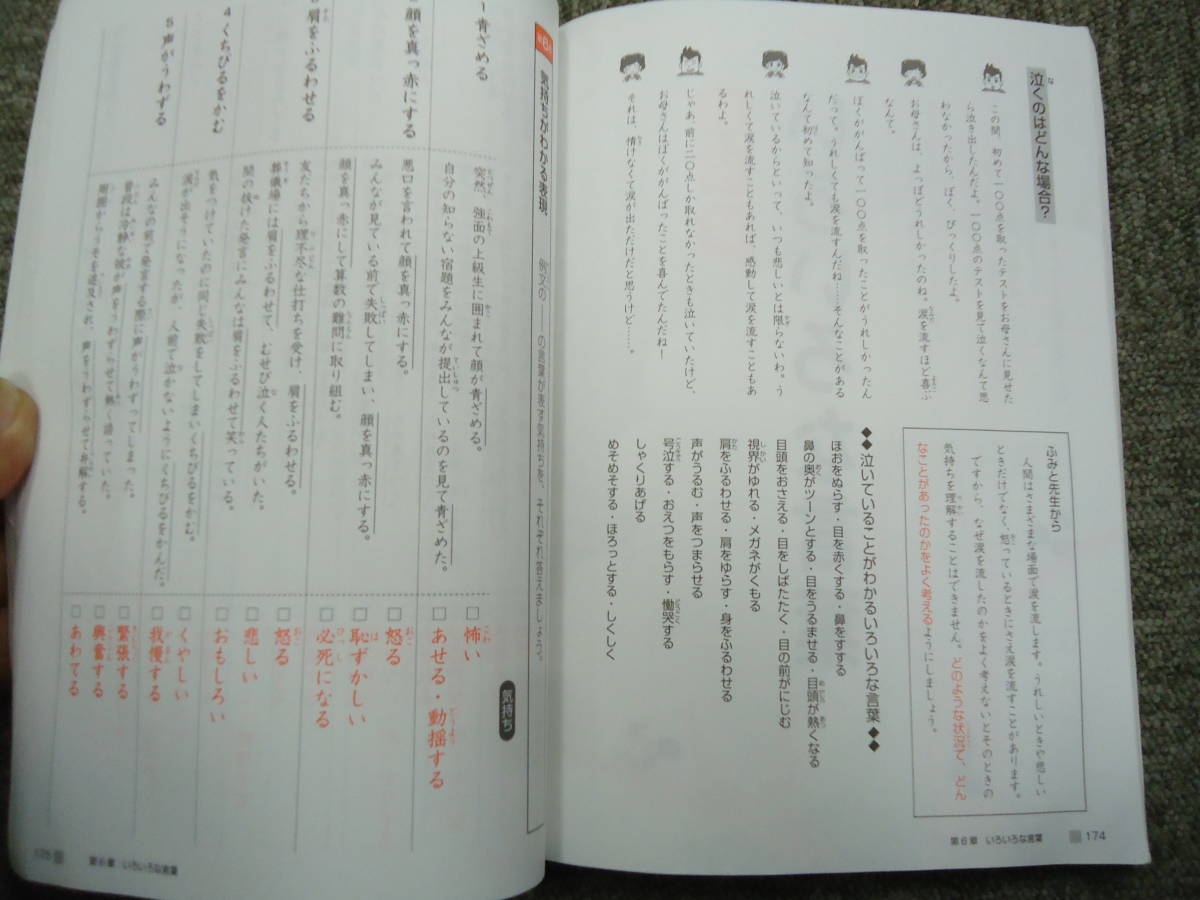 泣くのはどんな場合?
この間、初めて一〇〇点を取ったテストをお母さんに見せた
ら泣き出したんだよ。一〇〇点のテストを見て泣くなんて思
わなかったから、ぼく、びっくりしたよ。
お母さんは、よっぽどうれしかったのね。涙を流すほど喜ぶ
なんて。
ぼくががんばって一〇〇点を取ったことがうれしかったん
だって。うれしくても涙を流すんだね……そんなことがある
なんて初めて知ったよ。
泣いているからといって、いつも悲しいとは限らないわ。う
れしくて涙を流すこともあれば、感動して涙を流すこともあ
るわよ。
じゃあ、前に二〇点しか取れなかったときも泣いていたけど、
お母さんはぼくががんばったことを喜んでたんだね!
それは、情けなくて涙が出ただけだと思うけど……。
ふみと先生から
人間はさまざまな場面で涙を流します。うれしいときや悲しい
ときだけでなく、怒っているときにさえ涙を流すことがあります。
ですから、なぜ涙を流したのかをよく考えないとそのときの
気持ちを理解することはできません。どのような状況で、どん
なことがあったのかをよく考えるようにしましょう。
◆◆泣いていることがわかるいろいろな言葉◆◆
ほおをぬらす・目を赤くする・鼻をすする
鼻の奥がツーンとする・目をうるませる・目頭が熱くなる
目頭をおさえる・目をしばたたく・目の前がにじむ
視界がゆれる・メガネがくもる
肩をふるわせる・肩をゆらす・身をふるわせる
声がうるむ・声をつまらせる
号泣する・おえつをもらす・慟哭する
しゃくりあげる
めそめそする・ほろっとする・しくしく
第6章 いろいろな言葉
174
気持ちがわかる表現
例文の――の言葉が表す気持ちを、それぞれ答えましょう。
気持ち
1 青ざめる
突然、強面の上級生に囲まれて顔が青ざめる。
□ 怖い
自分の知らない宿題をみんなが提出しているのを見て青ざめた。
□ あせる・動揺する
顔を真っ赤にする
悪口を言われて顔を真っ赤にする。
□ 怒る
みんなが見ている前で失敗してしまい、顔を真っ赤にする。
□ 恥ずかしい
顔を真っ赤にして算数の難問に取り組む。
□ 必死になる
肩をふるわせる
友だちから理不尽な仕打ちを受け、肩をふるわせる。
□ 怒る
葬儀場には肩をふるわせて、むせび泣く人たちがいた。
□ 悲しい
間の抜けた発言にみんなは肩をふるわせて笑っている。
□ おもしろい
4 くちびるをかむ
気をつけていたのに同じ失敗をしてしまいくちびるをかむ。
□ くやしい
涙が出そうになったが、人前で泣かないようにくちびるをかんだ。
□ 我慢する
5 声がうわずる
みんなの前で発言する際に声がうわずってしまった。
□ 緊張する
普段は冷静な彼が声をうわずらせて熱く語っていた。
□ 興奮する
周囲からうそを追及され、声をうわずらせて弁解する。
□ あわてる
175
第6章 いろいろな言葉